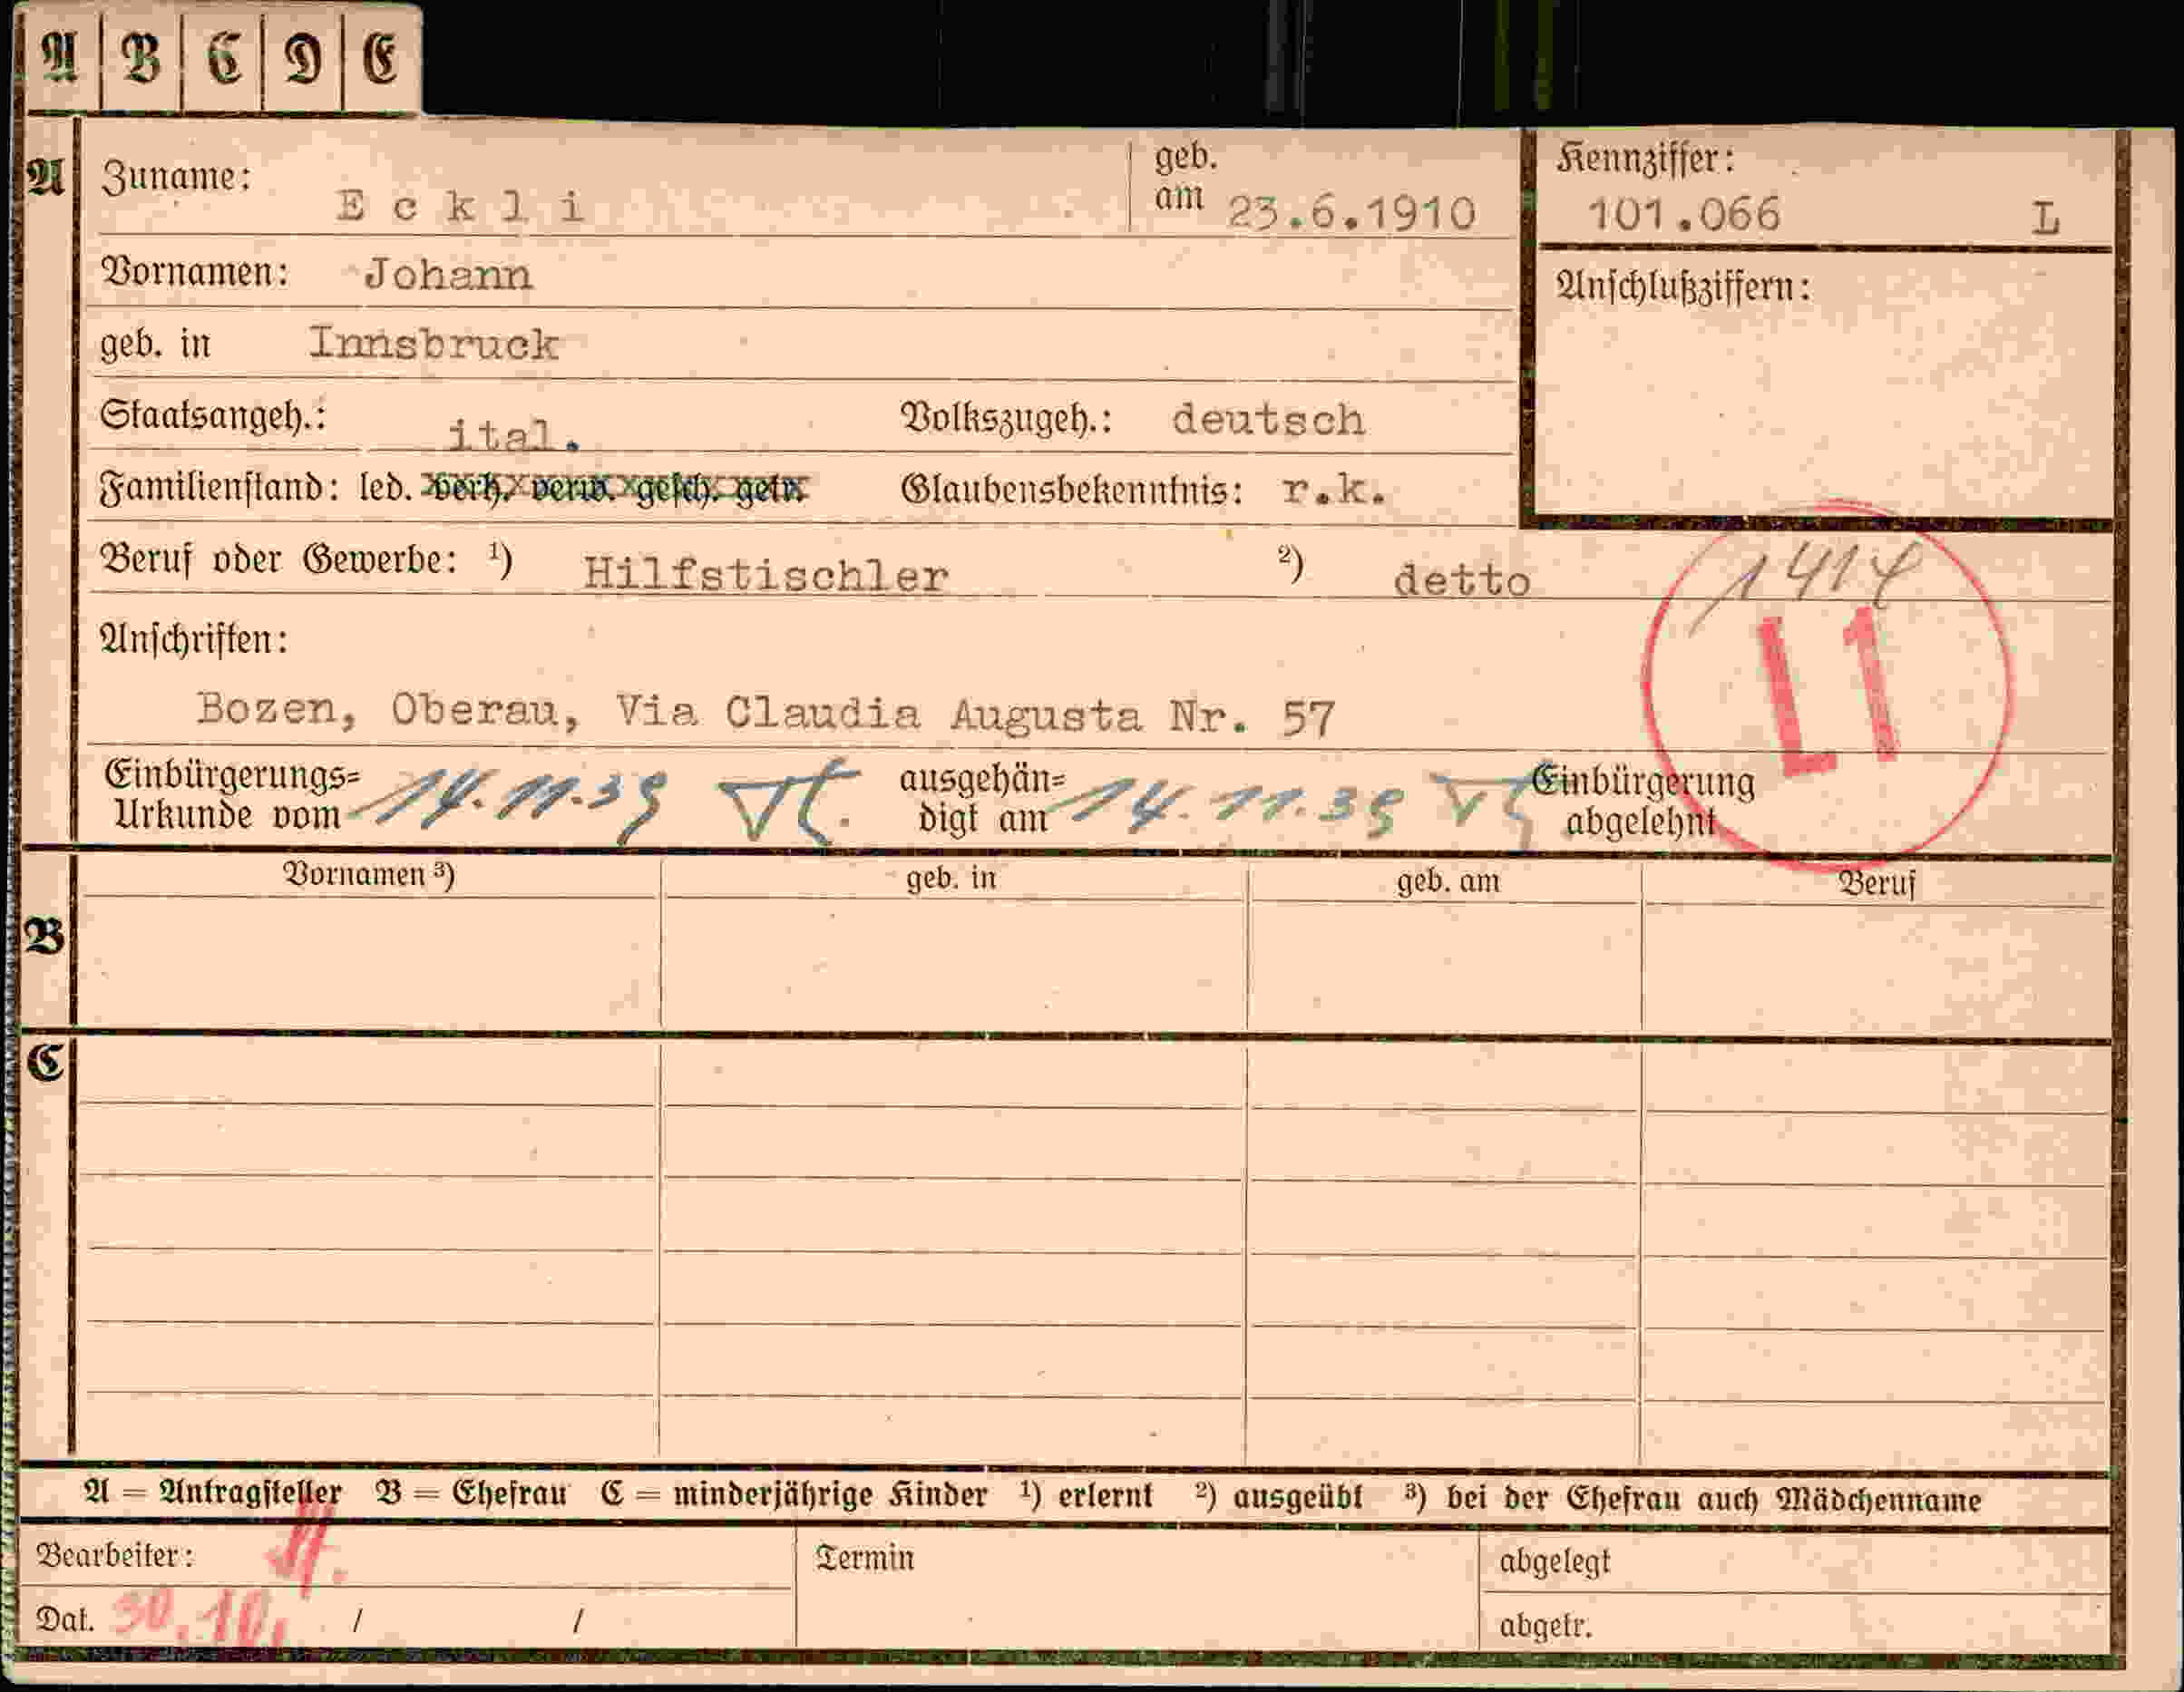 A B C D E
A Zuname: Eckli geb. am 23.6.1910 Kennziffer: 101.066 L
Vornamen: Johann Anschlußziffern:
geb. in Innsbruck
Staatsangeh.: ital. Volkszugeh.: deutsch
Familienstand: led. verh. verw. gesch. getr. Glaubensbekenntnis: r.k.
Beruf oder Gewerbe: ¹) Hilfstischler ²) detto
Anschriften: L1
Bozen, Oberau, Via Claudia Augusta Nr. 57
Einbürgerungs= Urkunde vom 14.11.39 ausgehän= digt am 14.11.39 Einbürgerung abgelehnt
Vornamen ³) geb. in geb. am Beruf
B
C
A = Antragsteller B = Ehefrau C = minderjährige Kinder ¹) erlernt ²) ausgeübt ³) bei der Ehefrau auch Mädchenname
Bearbeiter: Termin abgelegt
Dat. 30.10. / / abgetr.